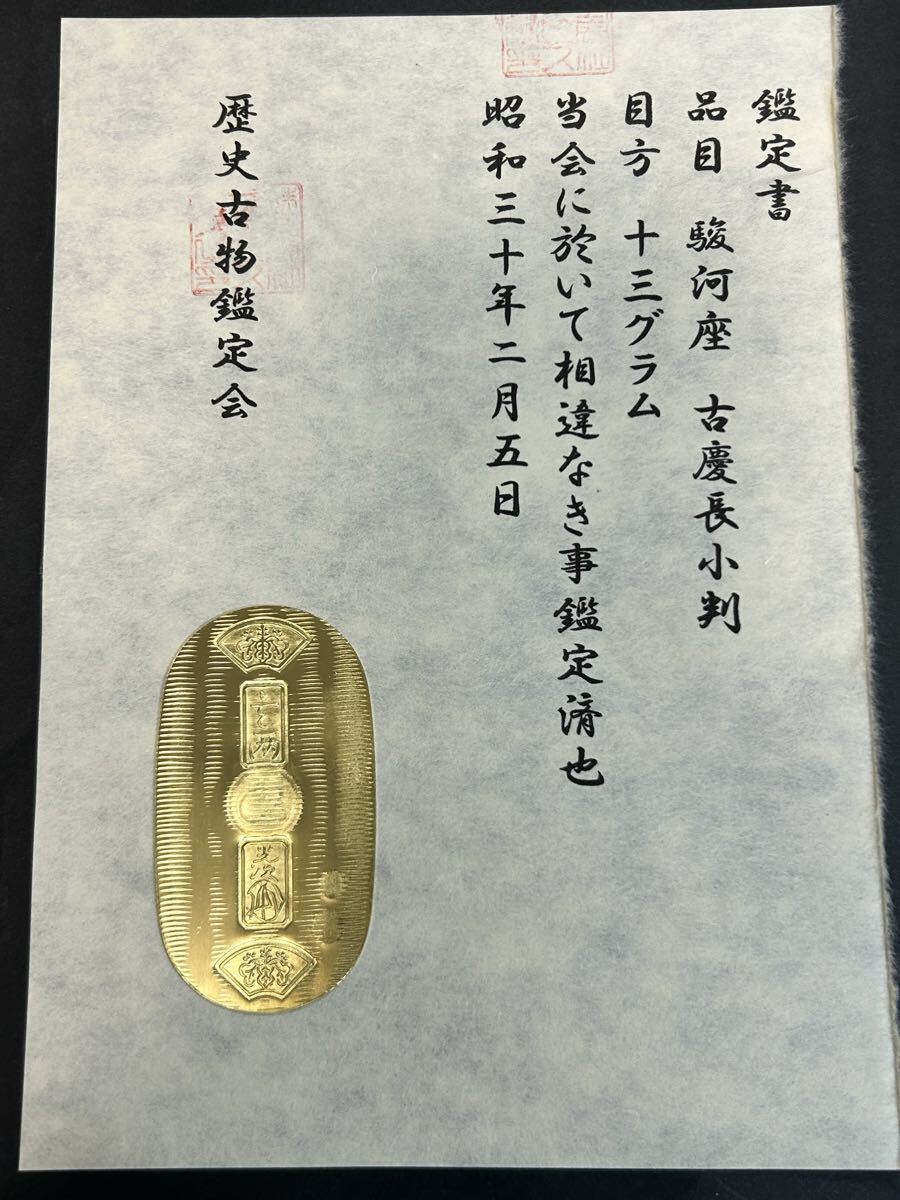 鑑定書
品目 駿河座 古慶長小判
目方 十三グラム
当会に於いて相違なき事鑑定済也
昭和三十年二月五日
歴史古物鑑定会